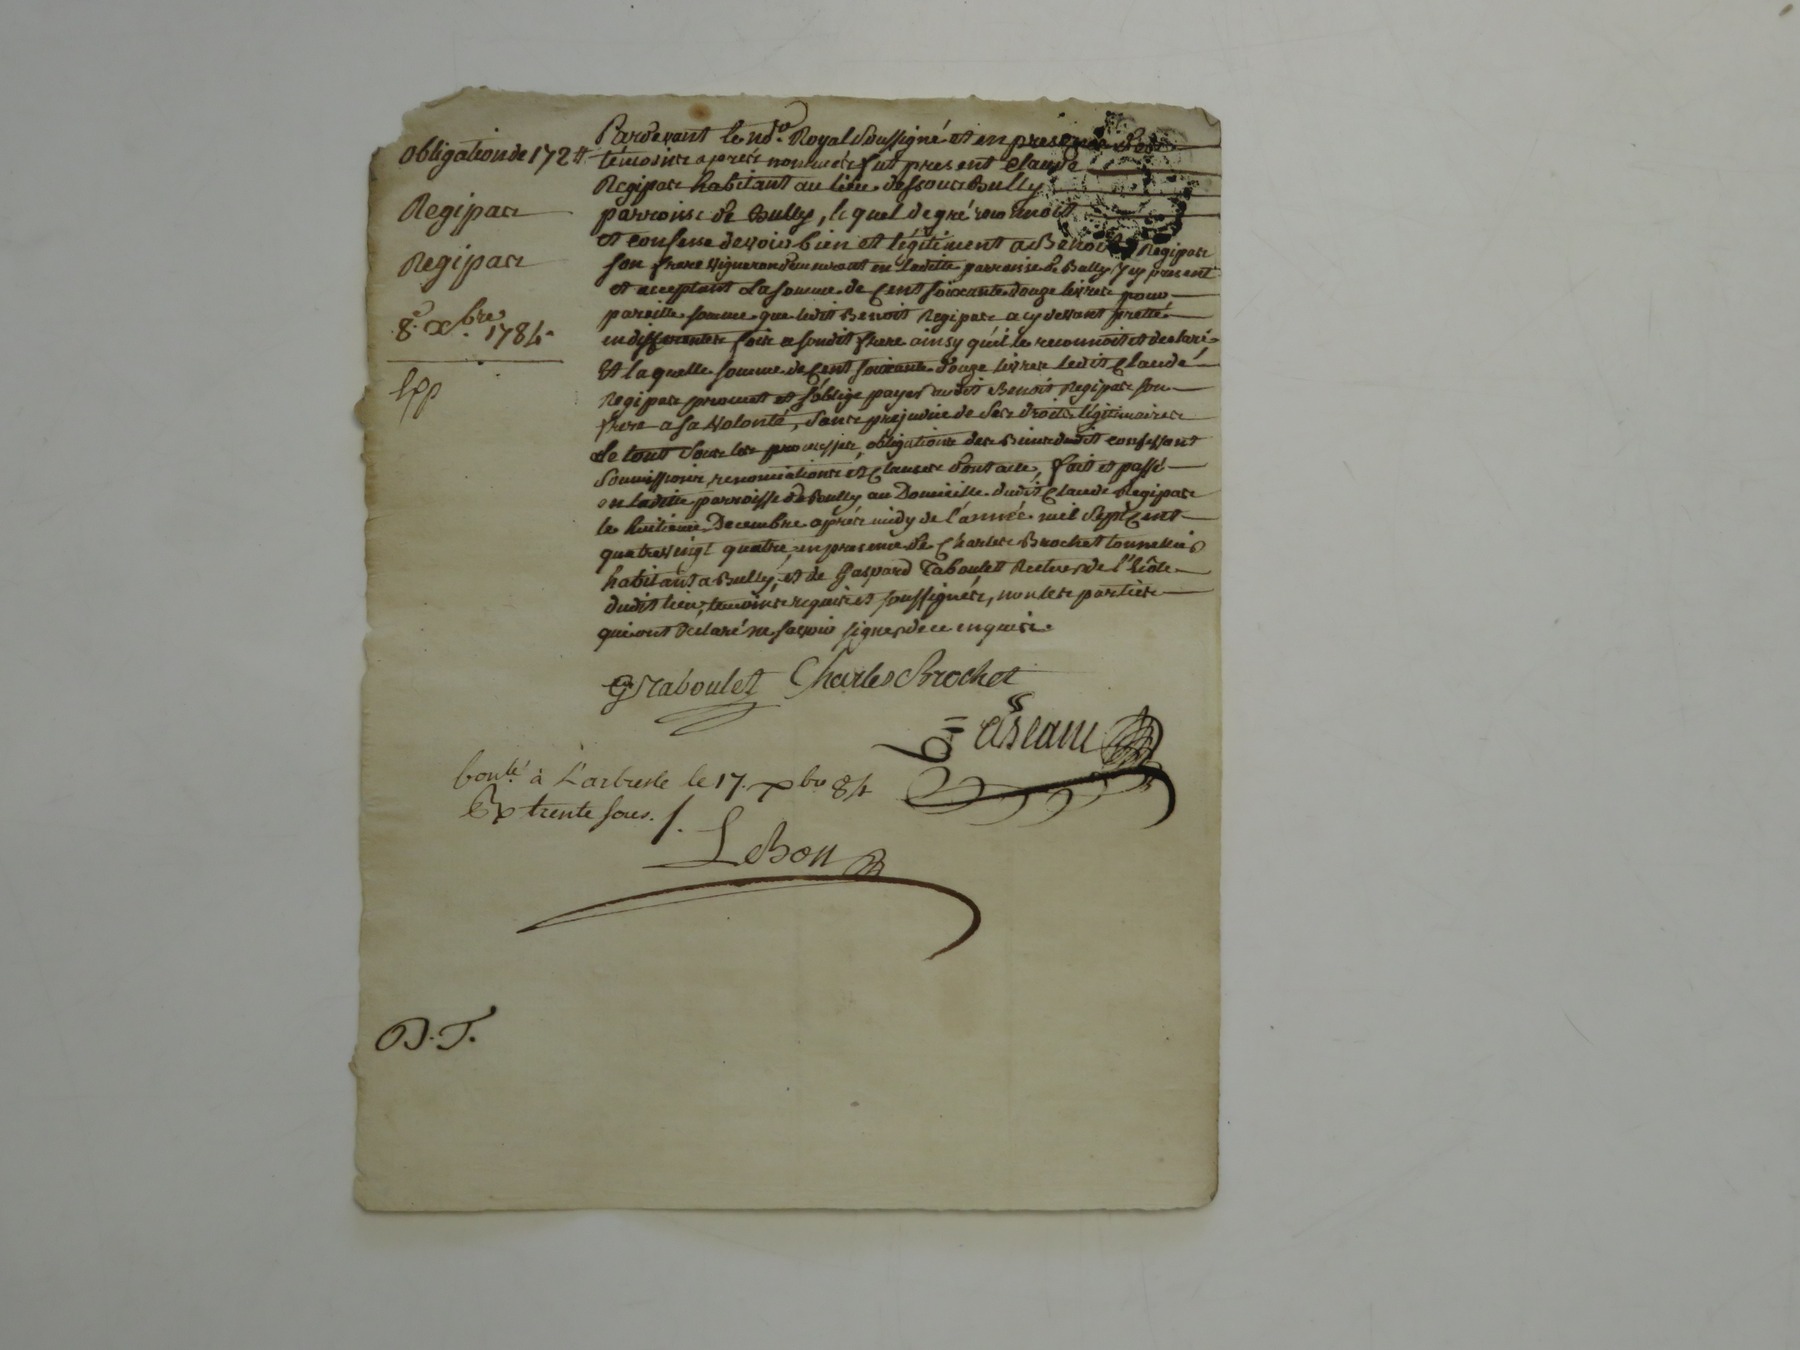 Obligation de 172 ₶
Regipas
Regipas
8.e xbre 1784
Exp
Pardevant le no.re Royal Soussigné et en presence des
témoins après nommés fut present Claude
Regipas habitant au lieu dessous Bully
parroisse de Bully, lequel de gré reconnoit
et confesse devoir bien et légitiment a Benoit Regipas
son frere vigneron demeurant en Ladite parroisse de Bully y present
et acceptant La somme de Cent soixante douze livres pour
pareille somme que ledit Benoit Regipas a cy devant pretté
en differentes fois a sondit frere ainsy qu'il le reconnoit et declaré
Et laquelle somme de Cent soixante douze livres ledit Claude
Regipas promet et s'oblige payer audit Benoit Regipas son
frere a sa Volonté, sans prejudice de Ses droits légitimaires
Le tout Sous les promesses, obligations des Biens dudit confessant
Soumissions, renonciations et Clauses dont acte, fait et passé
en Ladite parroisse de Bully au Domicille dudit Claude Regipas
le huitieme Decembre après midy de l'année mil Sept Cent
quatre vingt quatre, en presence de Charles Brochet tonnelier
habitant a Bully, et de Gaspard Taboulet Recteur de l'Ecôle
dudit lieu, temoins requis et soussignés, non les parties
qui ont déclaré ne savoir signer de ce enquis.
G Taboulet Charles Brochet
bonlé à L'arbresle le 17. xbre 84
trente sous.
LeBon
D.T.